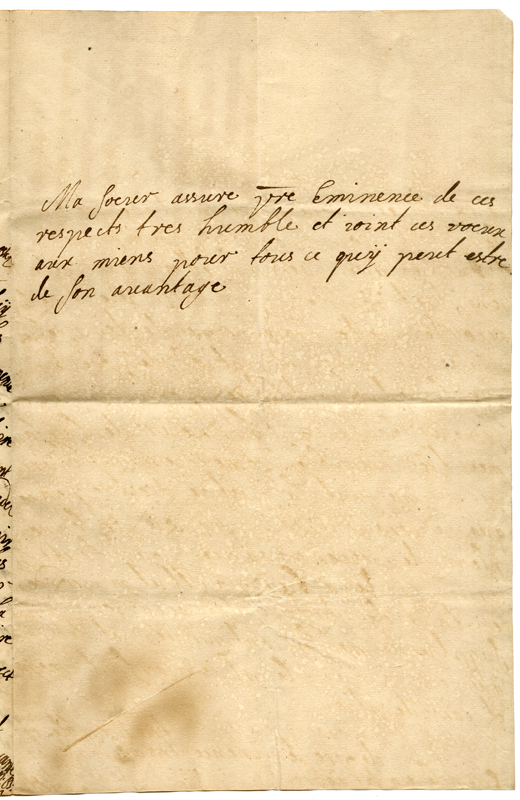 Ma soeur assure vre Eminence de ces
respects tres humble et ioint ces voeux
aux miens pour tous ce quÿ peut estre
de son auantage